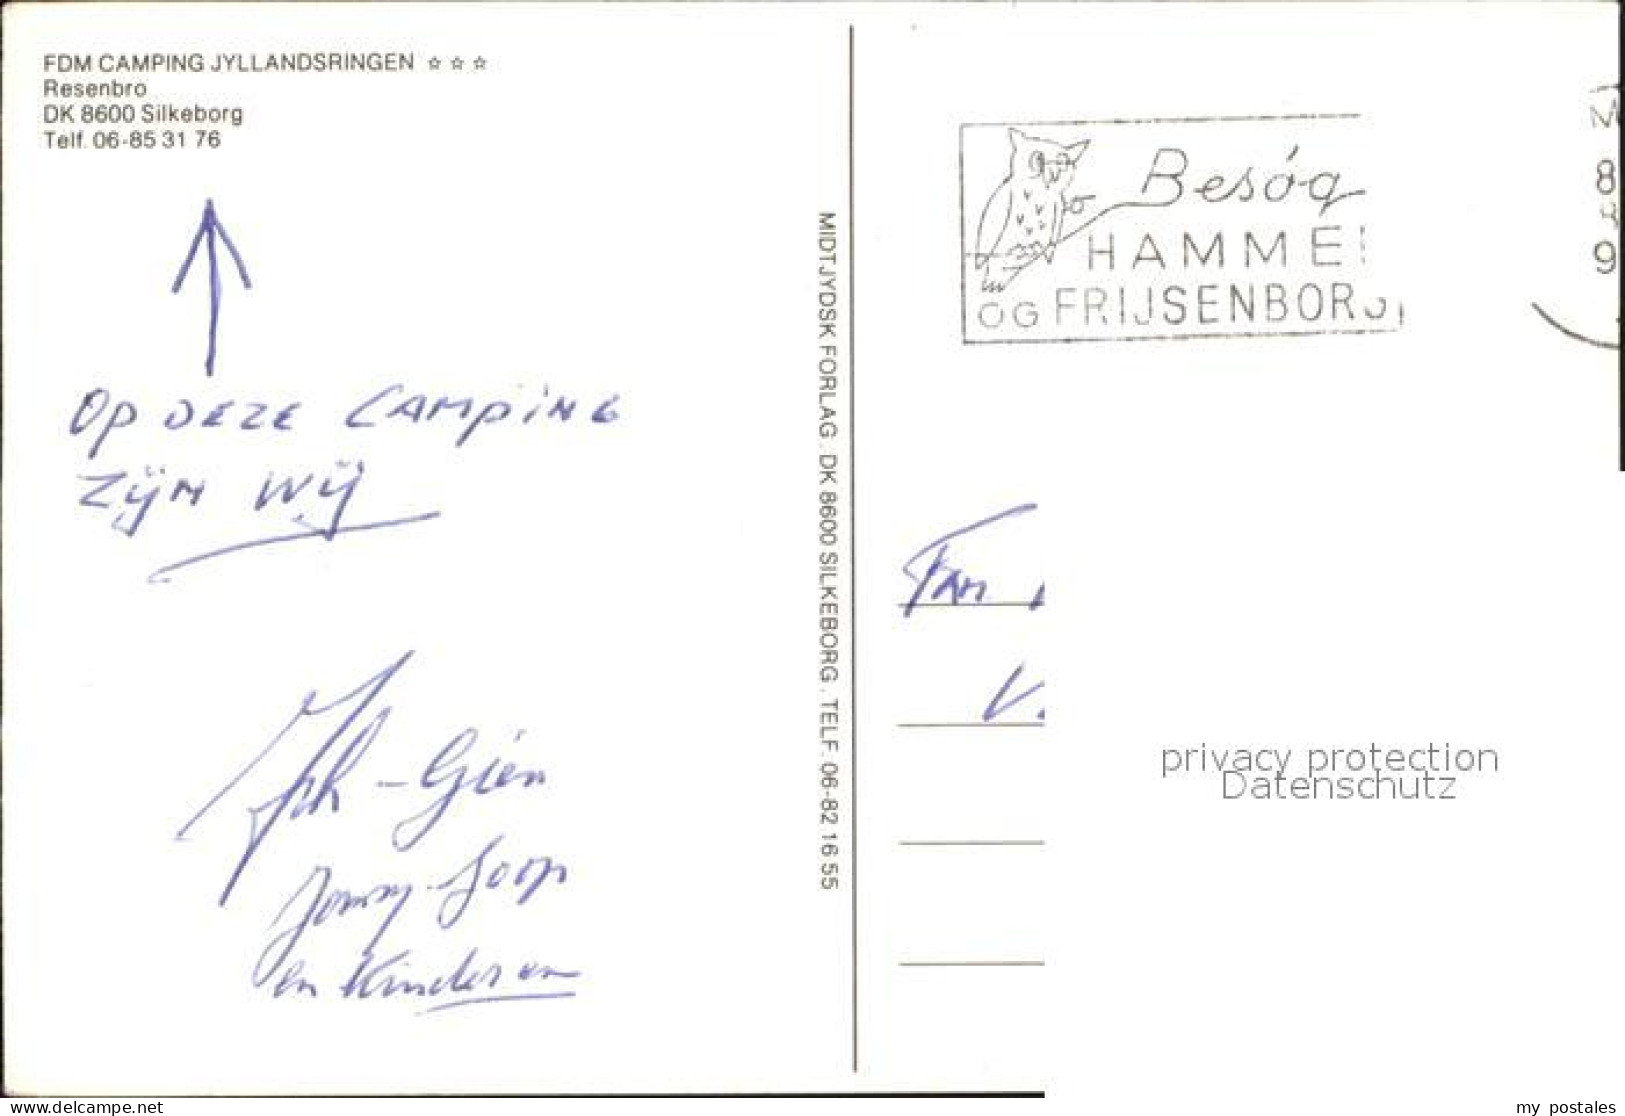 FDM CAMPING JYLLANDSRINGEN ☆ ☆ ☆
Resenbro
DK 8600 Silkeborg
Telf. 06-85 31 76
Op DEZE CAMPiNG
Zijn Wij
- Gien
Joop
en Kinderen
MIDTJYDSK FORLAG . DK 8600 SILKEBORG . TELF. 06-82 16 55
Besøg
HAMME
OG FRIJSENBORG
8
9
FAM
V.
privacy protection
Datenschutz
www.delcampe.net
my_postales